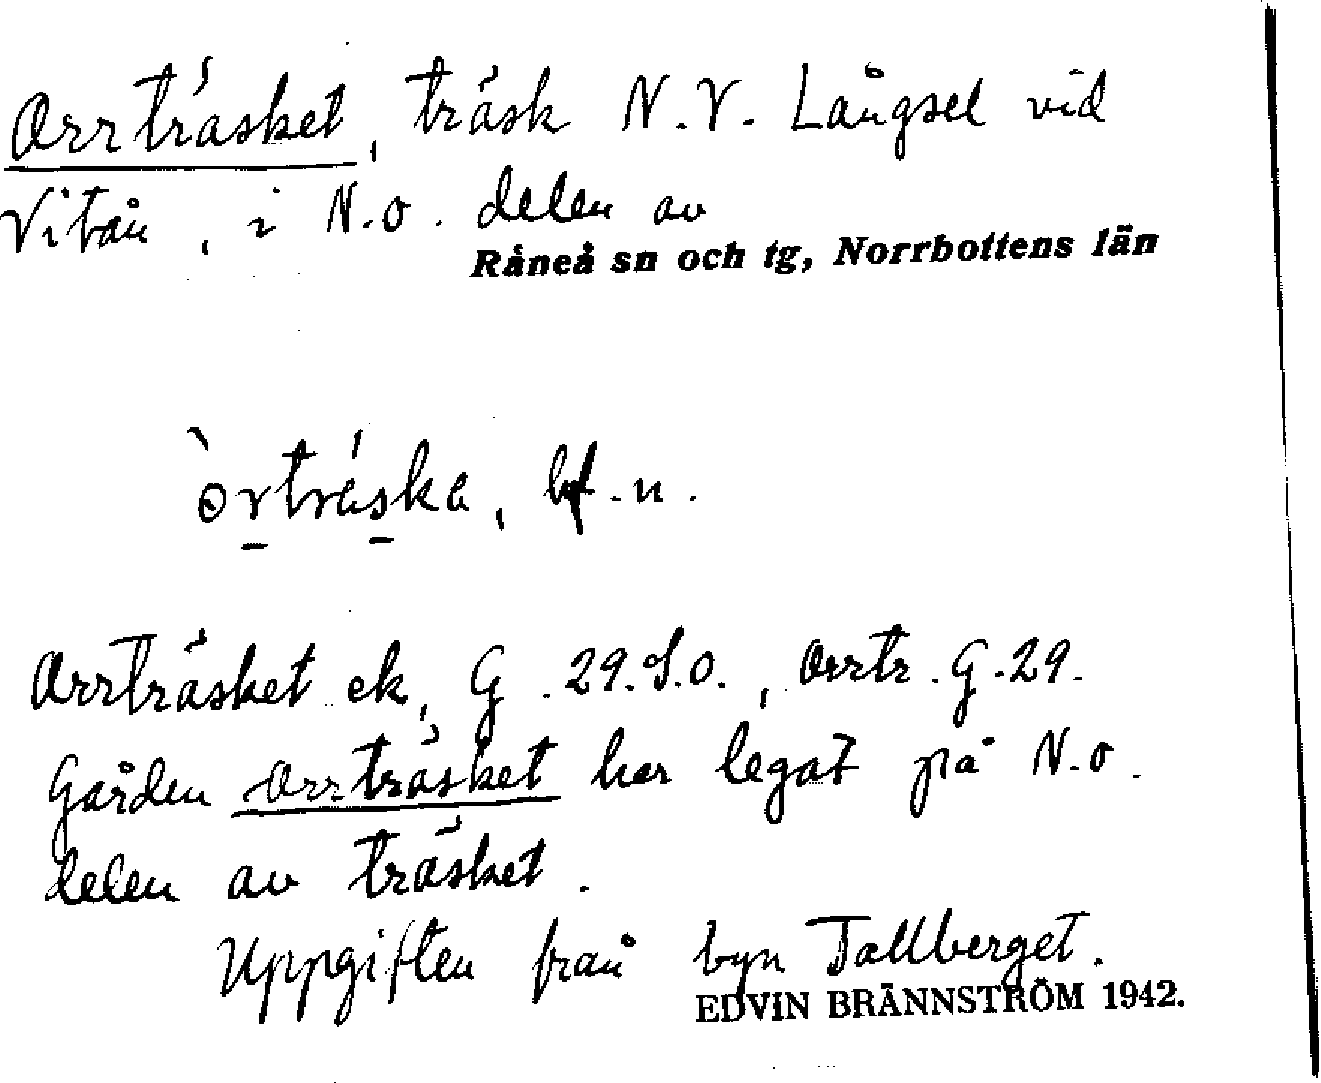 Orrträsket, träsk N.V. Långsel vid
Vitån, i N.O. delen av
Råneå sn och tg, Norrbottens län
òrtráska, bf.n.
Orrträsket ek, G. 29.S.O., Orrtr. G.29.
Gården Orrträsket har legat på N.O.
delen av träsket.
Uppgiften från byn Tallberget.
EDVIN BRÄNNSTRÖM 1942.